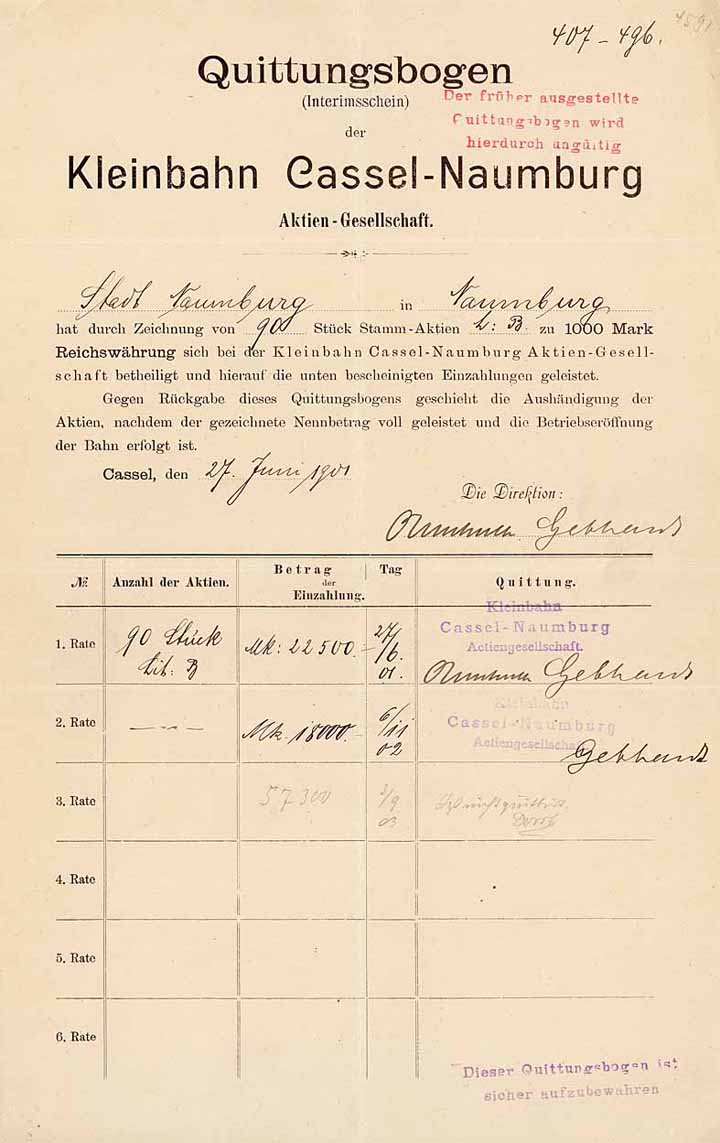 407–496.
Quittungsbogen
(Interimsschein)
Der früher ausgestellte
Quittungsbogen wird
hierdurch ungültig
der
Kleinbahn Cassel-Naumburg
Aktien-Gesellschaft.
Stadt Naumburg in Naumburg
hat durch Zeichnung von 90 Stück Stamm-Aktien L: B. zu 1000 Mark
Reichswährung sich bei der Kleinbahn Cassel-Naumburg Aktien-Gesell-
schaft betheiligt und hierauf die unten bescheinigten Einzahlungen geleistet.
Gegen Rückgabe dieses Quittungsbogens geschieht die Aushändigung der
Aktien, nachdem der gezeichnete Nennbetrag voll geleistet und die Betriebseröffnung
der Bahn erfolgt ist.
Cassel, den 27. Juni 1901
Die Direktion:
Gebhardt
№ Anzahl der Aktien. Betrag der Einzahlung. Tag Quittung.
Kleinbahn
Cassel-Naumburg
Actiengesellschaft.
1. Rate 90 Stück Lit: B Mk: 22 500.– 27/6. 01. Gebhardt
Kleinbahn
Cassel-Naumburg
Actiengesellschaft
2. Rate —〃— Mk. 18000.– 6/11 02 Gebhardt
3. Rate 57 300 /9 03 nicht quittirt.
4. Rate
5. Rate
6. Rate
Dieser Quittungsbogen ist
sicher aufzubewahren